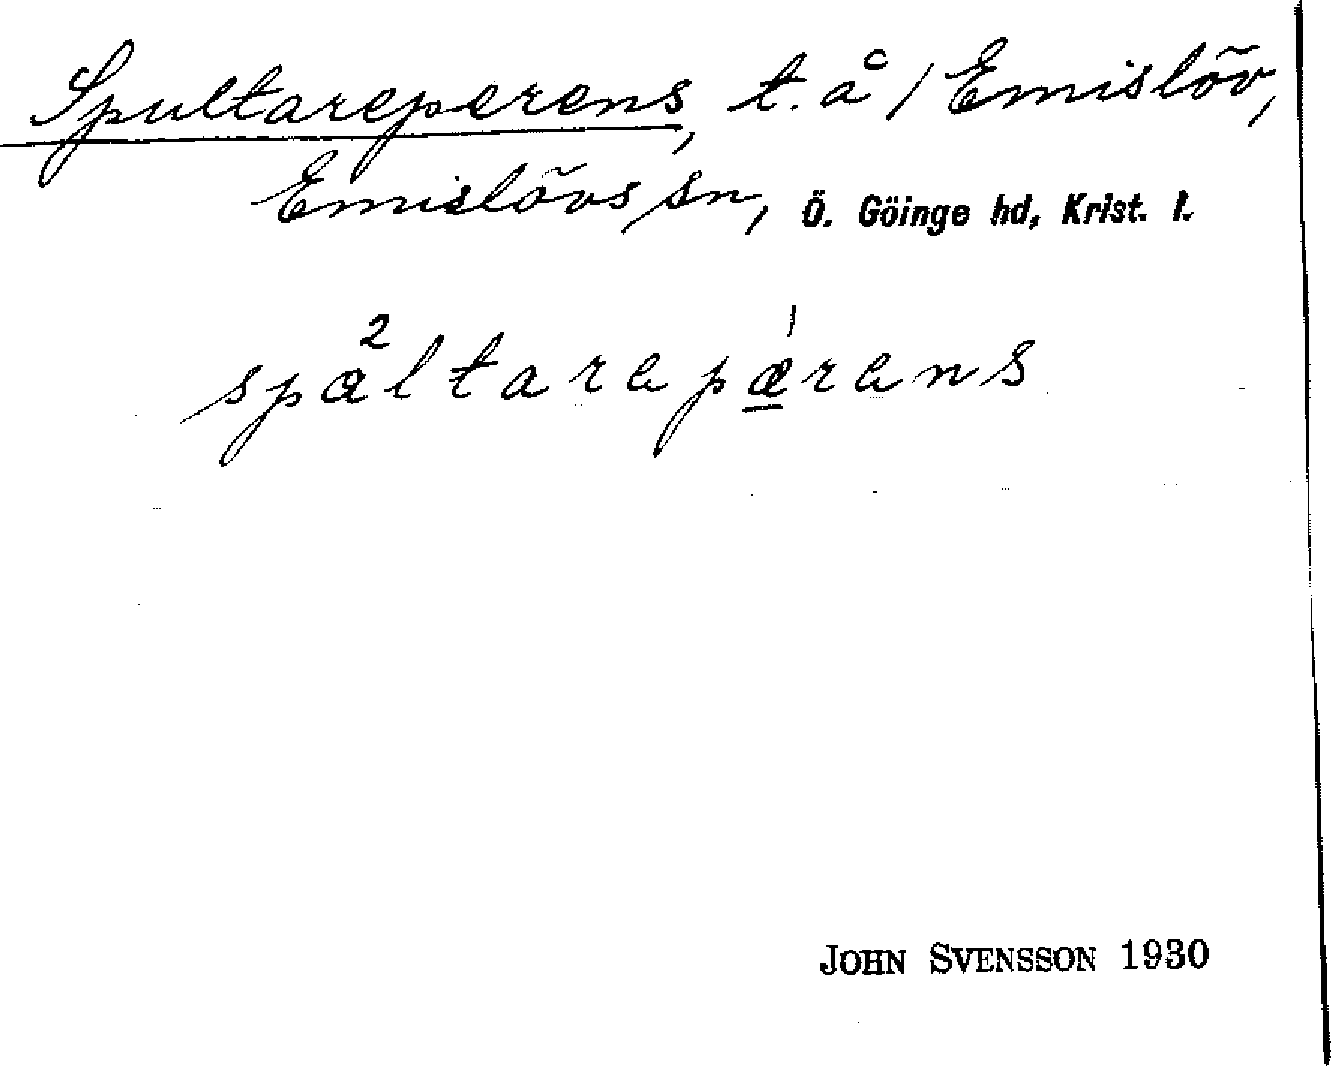 Spultareperens, t. å / Emislöv,
Emislövs sn, Ö. Göinge hd, Krist. l.
spa²ltarapæ̲ˈrans
JOHN SVENSSON 1930